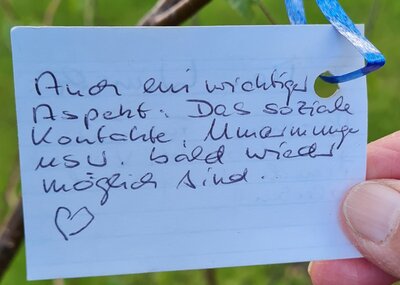 Auch ein wichtiger
Aspekt. Das soziale
Kontakte, Umarmunge
usw. bald wieder
möglich sind.
♡